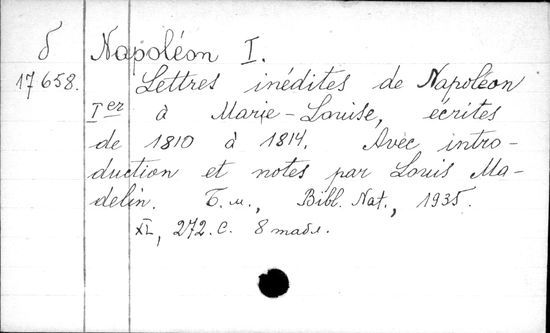 б Napoléon I.
17658. Lettres inédites de Napoléon
Ier à Marie-Louise, écrites
de 1810 à 1814. Avec intro-
duction et notes par Louis Ma-
delin. Б.м., Bibl. Nat., 1935.
XL, 272 с. 8 табл.